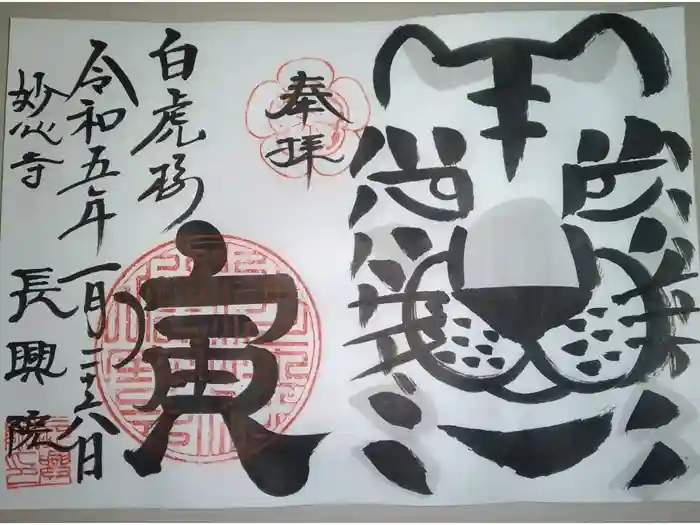 奉拝
白虎杉
寅
令和五年一月二十八日
妙心寺
長興院